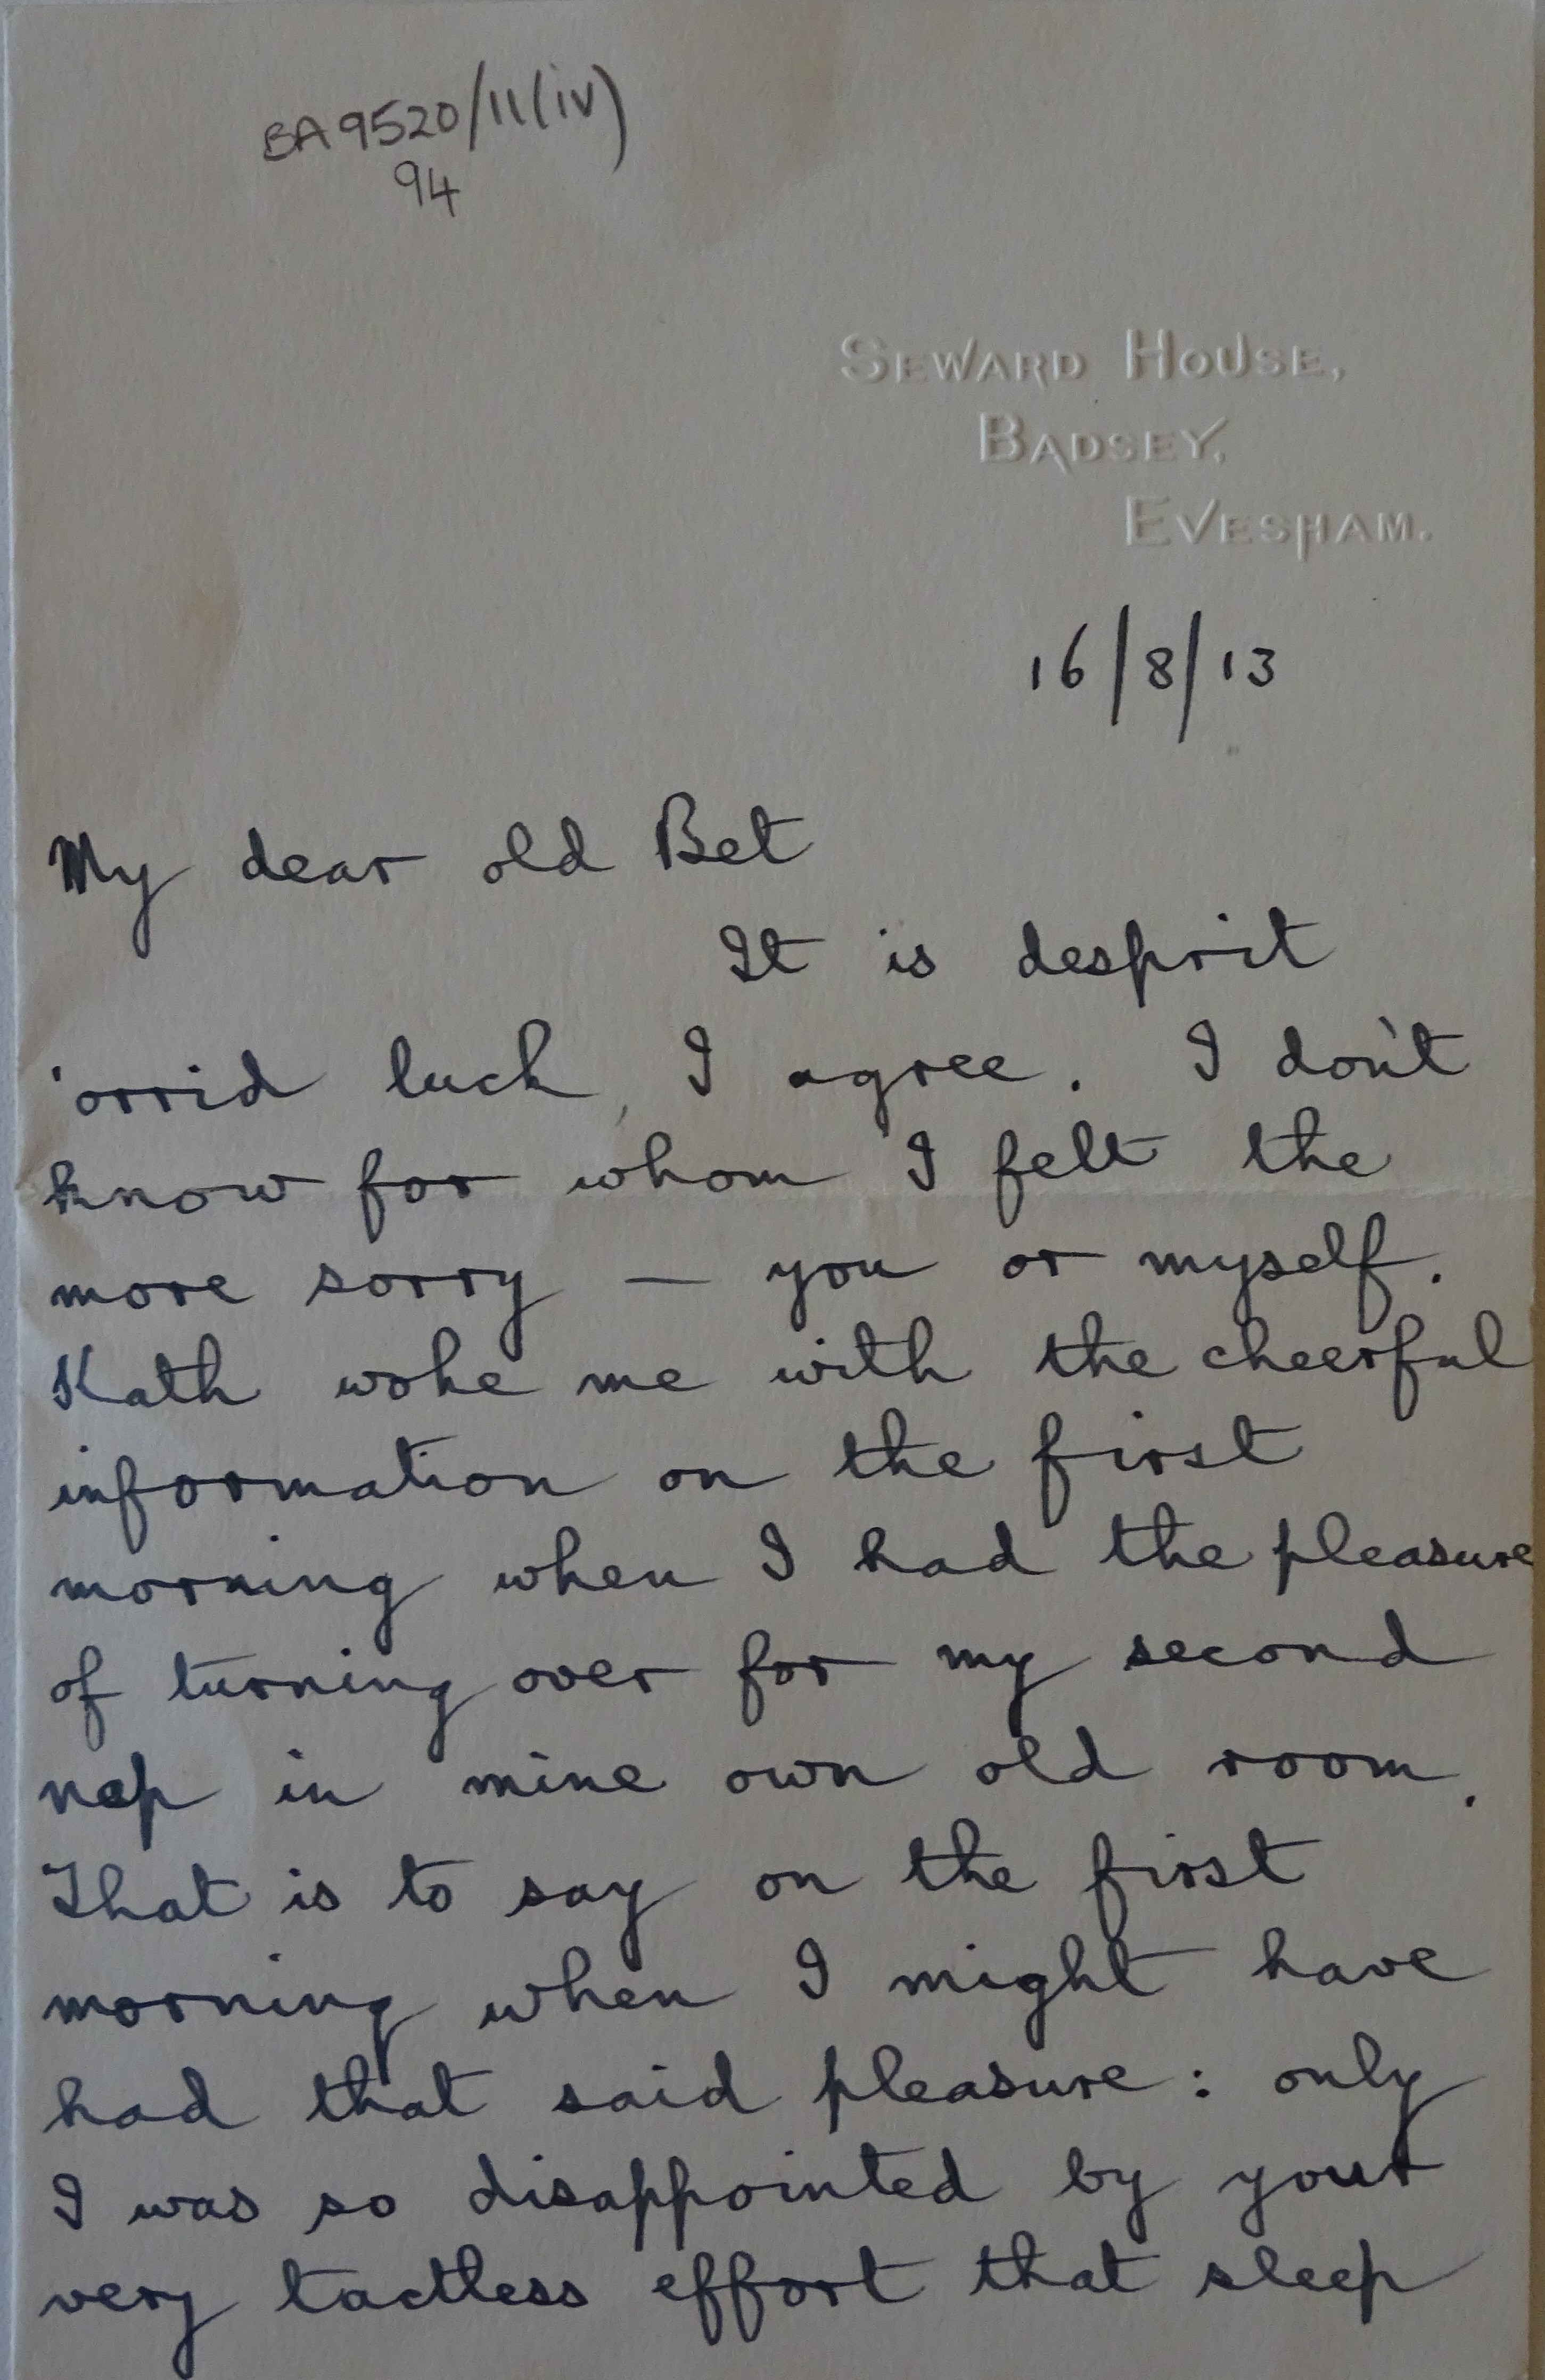 BA9520/11(iv)
94
SEWARD HOUSE,
BADSEY,
EVESHAM.
16/8/13
My dear old Bet
It is desprit
'orrid luck, I agree. I don't
know for whom I felt the
more sorry — you or myself.
Kath woke me with the cheerful
information on the first
morning when I had the pleasure
of turning over for my second
nap in mine own old room.
That is to say on the first
morning when I might have
had that said pleasure: only
I was so disappointed by your
very tactless effort that sleep